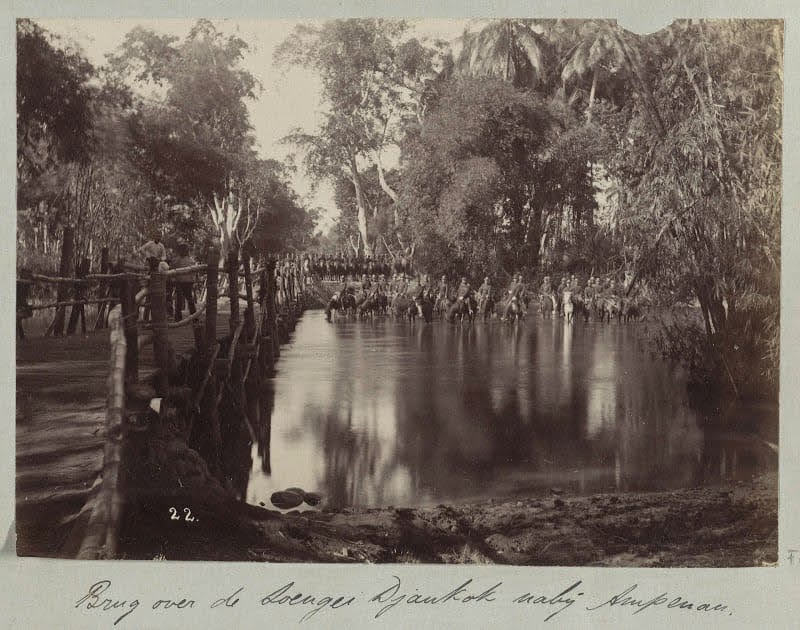 22.
Brug over de Soenger Djankok nabij Ampenan.